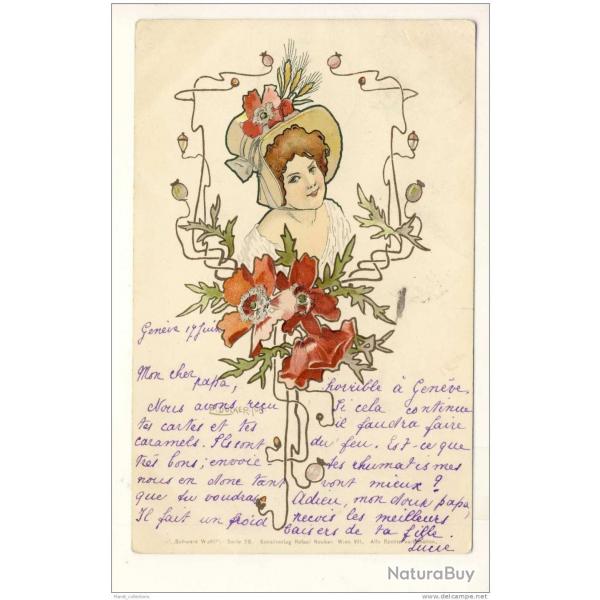 Genève 17 Juin
Mon cher papa,
Nous avons reçu
tes cartes et tes
caramels. Ils sont
très bons; envoie-
nous en donc tant
que tu voudras
Il fait un froid
horrible à Genève.
Si cela continue
il faudra faire
du feu. Est-ce que
tes rhumatismes
vont mieux?
Adieu, mon doux papa,
reçois les meilleurs
baisers de ta fille.
Lucie
DÖCKER
Serie 78. Kunstverlag Rafael Neuber, Wien VII. Alle Rechte
NaturaBuy
Handi_collections
www.delcampe.net